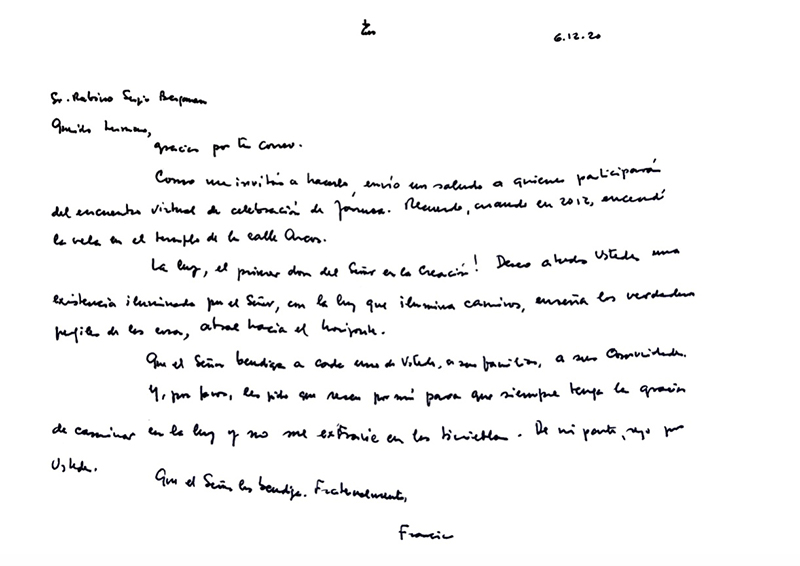 6.12.20
Sr. Rabino Sergio Bergman
Querido hermano,
gracias por tu correo.
Como me invitás a hacerlo, envío un saludo a quienes participarán
del encuentro virtual de celebración de Janucá. Recuerdo, cuando en 2012, encendí
la vela en el templo de la calle Arcos.
La luz, el primer don del Señor en la Creación! Deseo a todos Ustedes una
existencia iluminada por el Señor, con la luz que ilumina caminos, enseña los verdaderos
perfiles de las cosas, atrae hacia el horizonte.
Que el Señor bendiga a cada uno de Ustedes, a sus familias, a sus Comunidades.
Y, por favor, les pido que recen por mí para que siempre tenga la gracia
de caminar en la luz y no me extravíe en las tinieblas. De mi parte, rezo por
Ustedes.
Que el Señor los bendiga. Fraternalmente,
Francisco